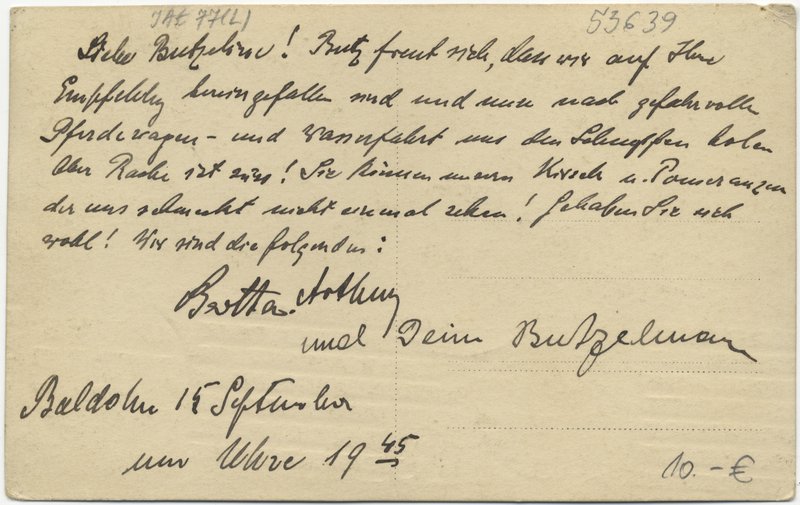 JAE 77(L)
53639
Liebe Butzeline! Butz freut sich, dass wir auf Ihre
Empfehlg hereingefallen sind und nun nach gefahrvoller
Pferdewagen- und Wasserfahrt uns den Schnupfen holen
Aber Rache ist süss! Sie können unsern Kirsch u. Pomeranzen
der uns schmeckt nicht einmal sehen! Gehaben Sie sich
wohl! Wir sind die folgenden:
Bertha. Arthur
und Dein Butzelmann
Baldohn 15 September
um Uhre 19 45
10.-€